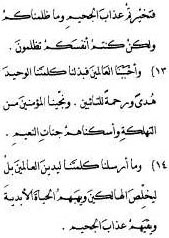 فتخيرتم عذاب الجحيم وما ظلمناكم
ولكن كنتم أنفسكم تظلمون ۰
(١٣) وأحببنا العالمين فبذلنا كلمتنا الوحيد
هدى ورحمة للتائبين ۰ ونجينا المؤمنين من
التهلكة وأسكناهم جنات النعيم ۰
(١٤) وما أرسلنا كلمتنا ليدين العالمين بل
ليخلص الهالكين ويهبهم الحياة الأبدية
ويقيهم عذاب الجحيم ۰